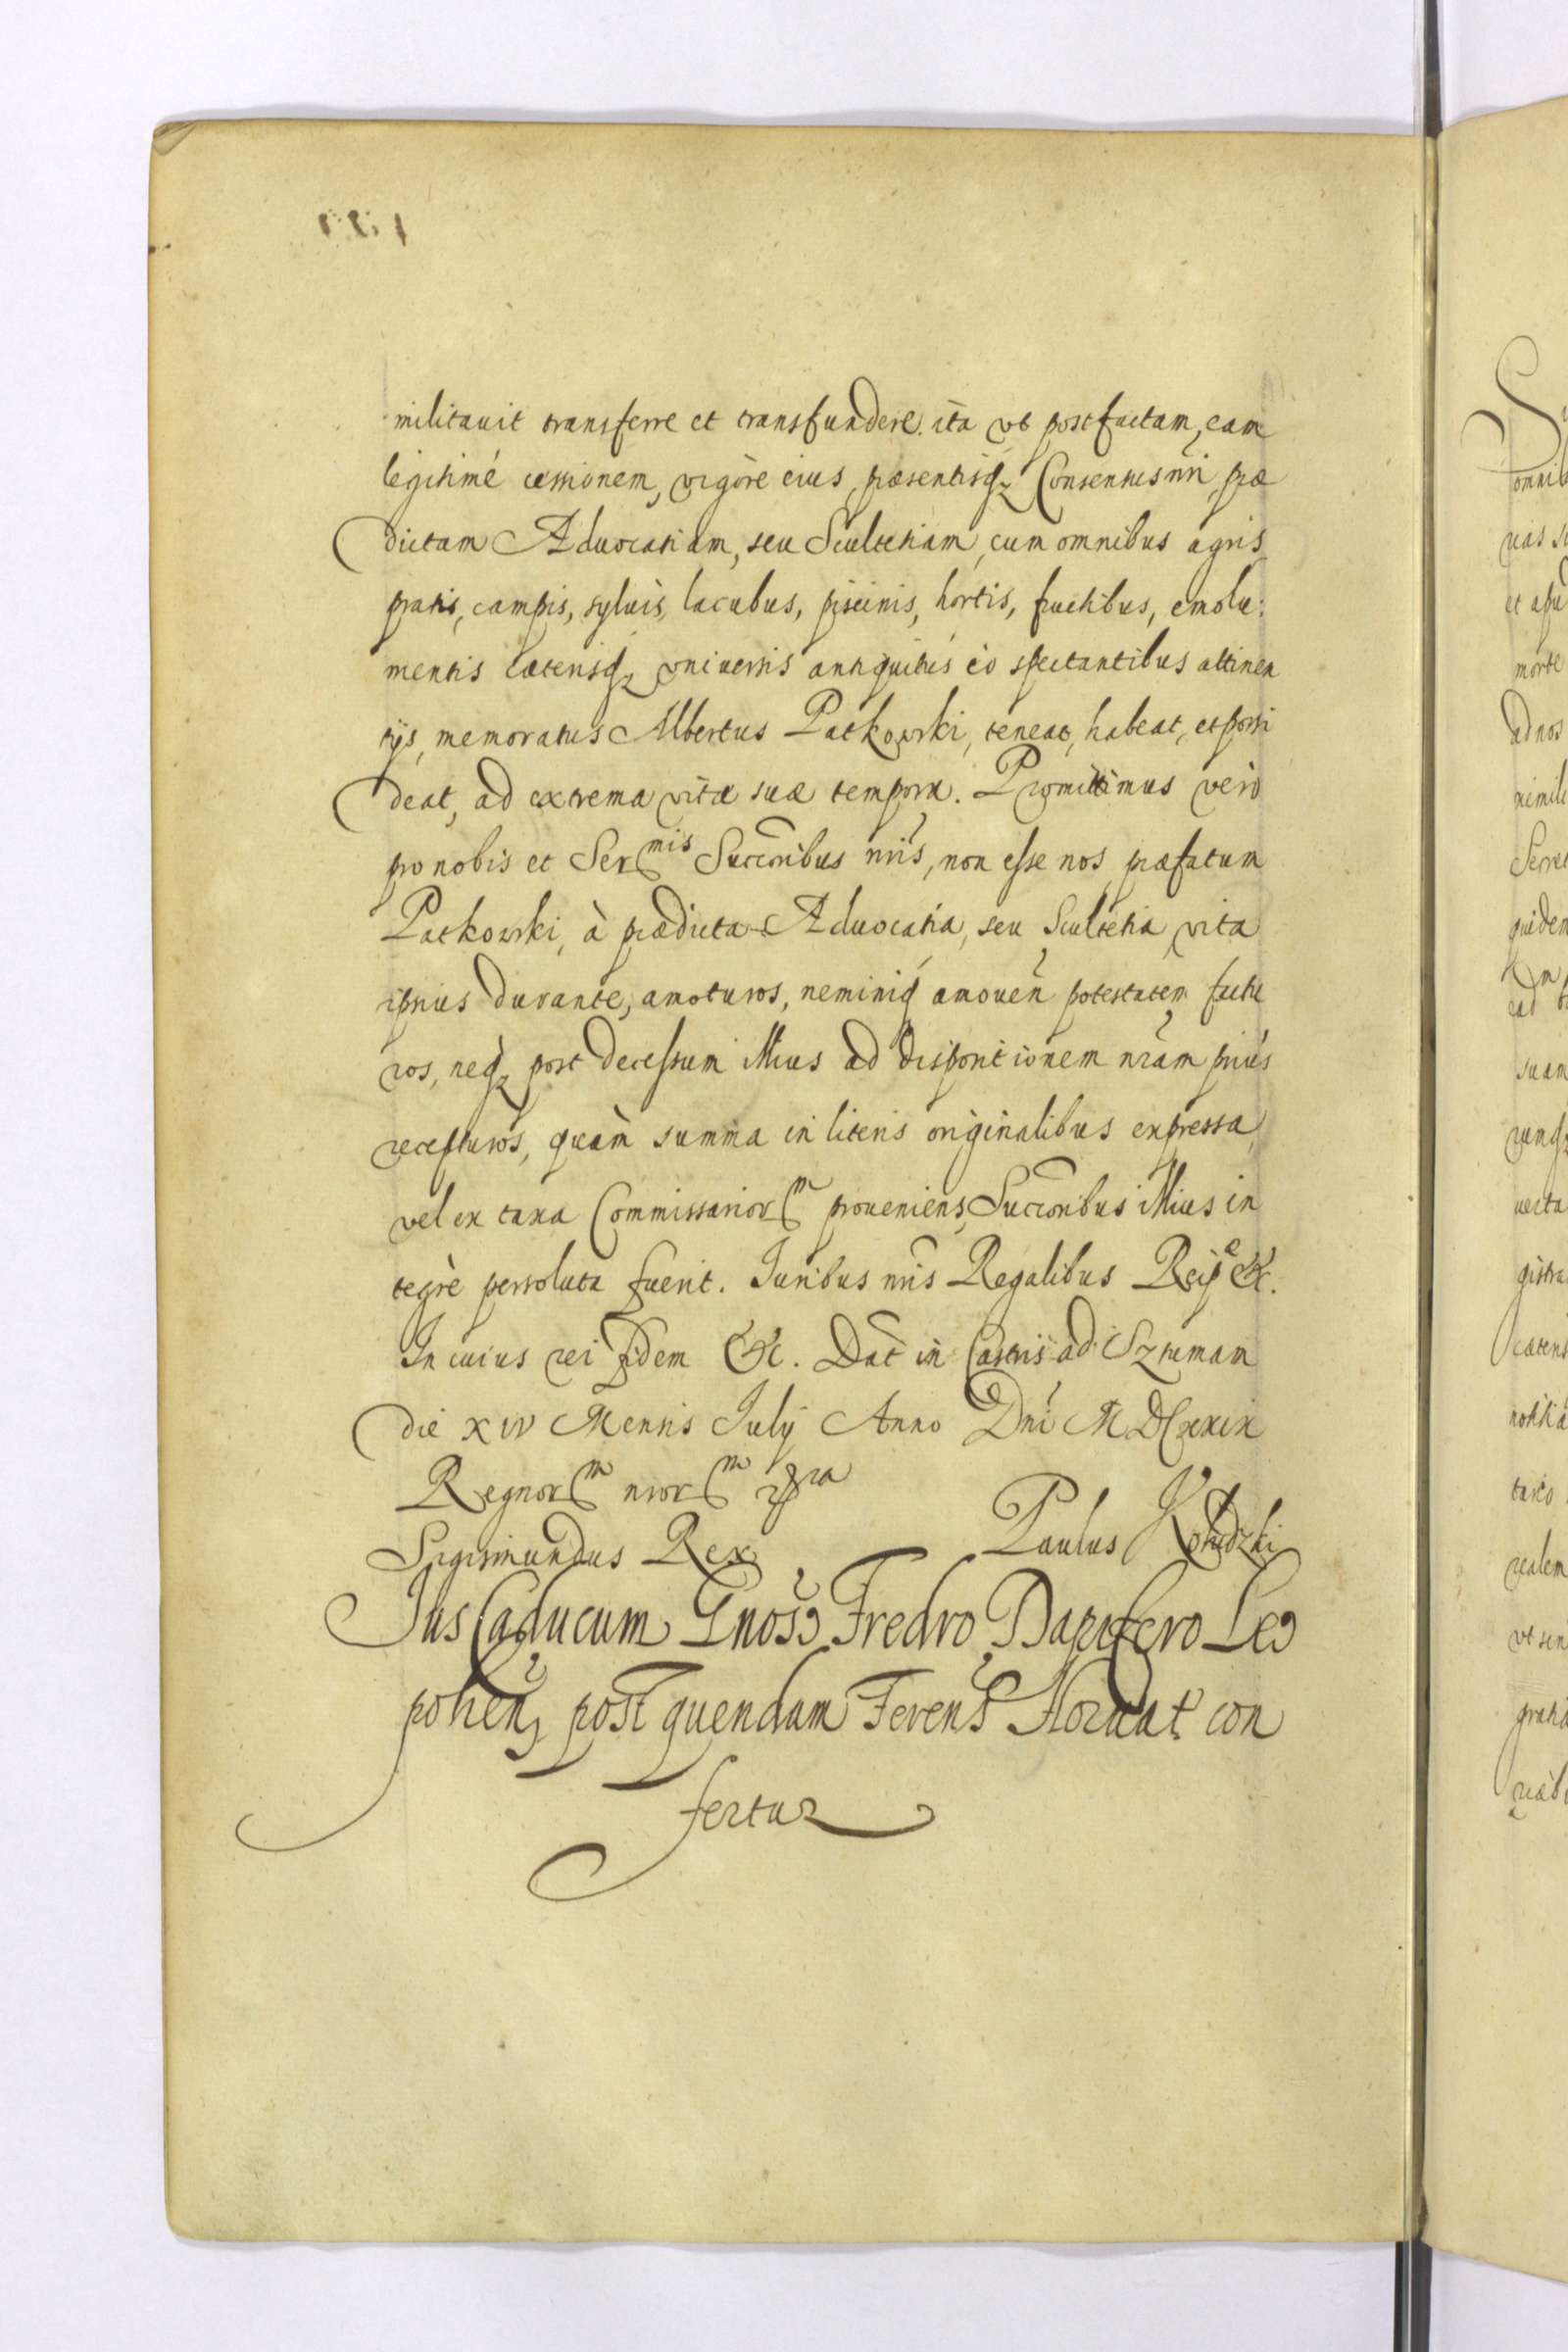 militauit transferre et transfundere. ita vt post factam, eam
legitimé cessionem, vigòre eius, præsentisq₃ Consensus nři, præ
dictam Aduocatiam, seu Scultetiam, cum omnibus agris
pratis, campis, syluis, lacubus, piscinis, hortis, fructibus, emolu:
mentis cæterisq₃ vniuersis antiquitús eò spectantibus attinen
tijs, memoratus Albertus Patkowski, teneat, habeat, et possi
deat, ad extrema vitæ suæ tempora. Promittimus verò
pro nobis et Ser^mis Succoribus nřis, non esse nos præfatum
Patkowski, à prædicta Aduocatia, seu Scultetia, vita
ipsius durante, amoturos, neminiq amouen̄ potestatem factu
ros, neq₃ post decessum illius ad dispositionem nřam priùs
recepturos, quàm summa in literis originalibus expressa,
vel ex taxa Commissarior^m proueniens, Succoribus illius in
tegrè persoluta fuerit. Juribus nřis Regalibus Reip^e &c.
In cuius rei fidem &c. Dat̄ in Castris ad Sztumam
die XIV Mensis Julij Anno Dni MDCXXIX
Regnor^m nror^m
Sigismundus Rex Paulus
Jus Caducum Gnoso Fredro Dapifero Leo
polien₃ post quendam Ferens con
fertur